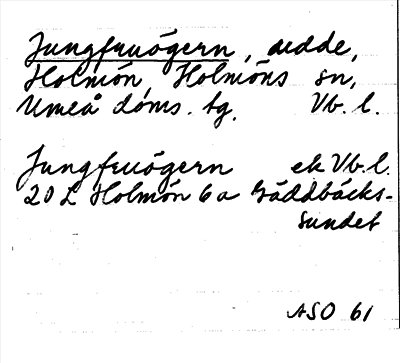 Jungfruögern, udde,
Holmön, Holmöns sn,
Umeå doms. tg, Vb. l.
Jungfruögern ek Vb. l.
20 L Holmön 6 a Gäddbäcks-
sundet
ASO 61